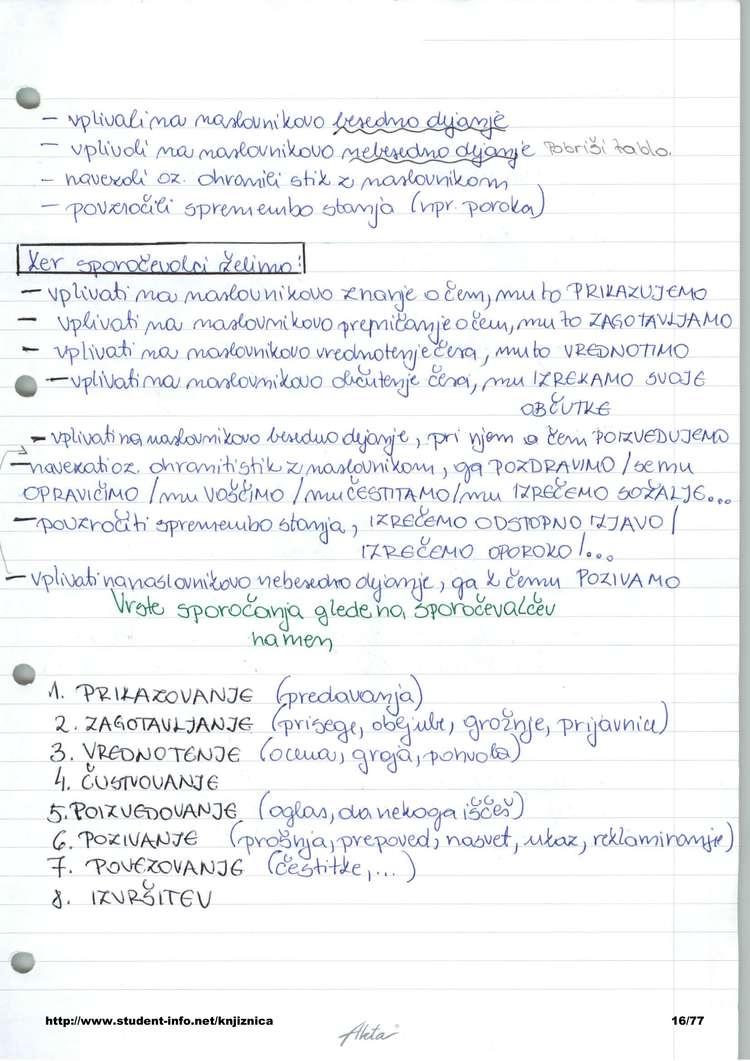 – vplivali na naslovnikovo besedno dejanje
– vplivali na naslovnikovo nebesedno dejanje Pobriši tablo.
– navezali oz. ohranili stik z naslovnikom
– povzročili spremembo stanja (npr. poroka)
Ker sporočevalci želimo:
– vplivati na naslovnikovo znanje o čem, mu to PRIKAZUJEMO
– vplivati na naslovnikovo prepričanje o čem, mu to ZAGOTAVLJAMO
– vplivati na naslovnikovo vrednotenje česa, mu to VREDNOTIMO
– vplivati na naslovnikovo občutenje česa, mu IZREKAMO SVOJE
OBČUTKE
– vplivati na naslovnikovo besedno dejanje, pri njem o čem POIZVEDUJEMO
– navezati oz. ohraniti stik z naslovnikom, ga POZDRAVIMO / se mu
OPRAVIČIMO / mu VOŠČIMO / mu ČESTITAMO / mu IZREČEMO SOŽALJE...
– povzročiti spremembo stanja, IZREČEMO ODSTOPNO IZJAVO /
IZREČEMO OPOROKO /...
– vplivati na naslovnikovo nebesedno dejanje, ga k čemu POZIVAMO
Vrste sporočanja glede na sporočevalčev
namen
1. PRIKAZOVANJE (predavanja)
2. ZAGOTAVLJANJE (prisege, obljube, grožnje, prijavnice)
3. VREDNOTENJE (ocena, graja, pohvala)
4. ČUSTVOVANJE
5. POIZVEDOVANJE (oglas, da nekoga iščeš)
6. POZIVANJE (prošnja, prepoved, nasvet, ukaz, reklamiranje)
7. POVEZOVANJE (čestitke, ...)
8. IZVRŠITEV
http://www.student-info.net/knjiznica 16/77
Akta